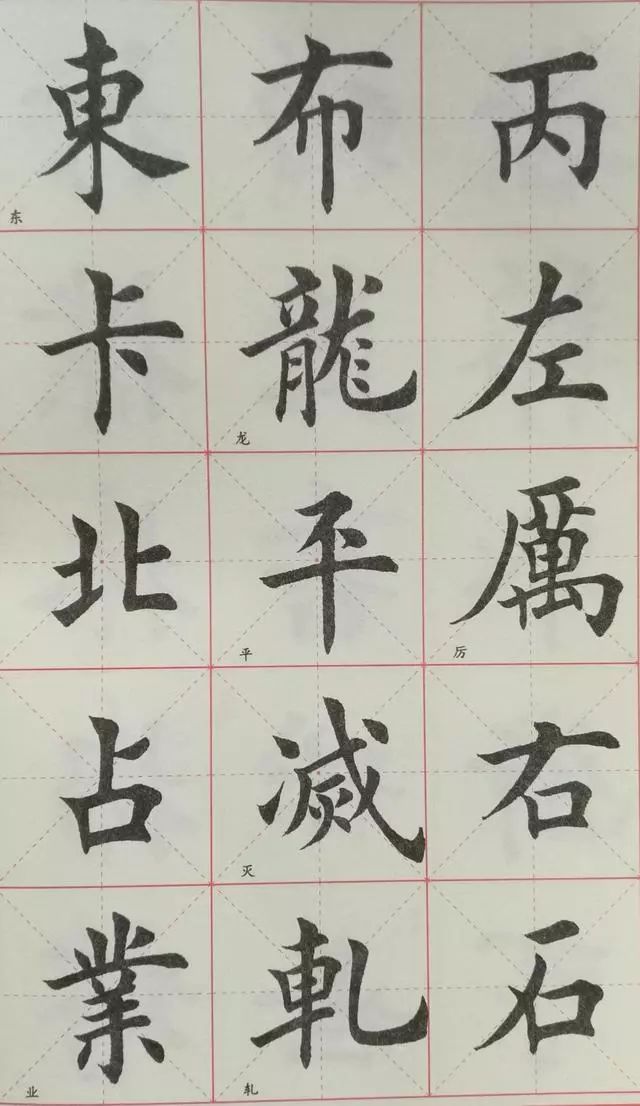 丙左厲厉右石
布龍龙平平滅灭軋轧
東东卡北占業业